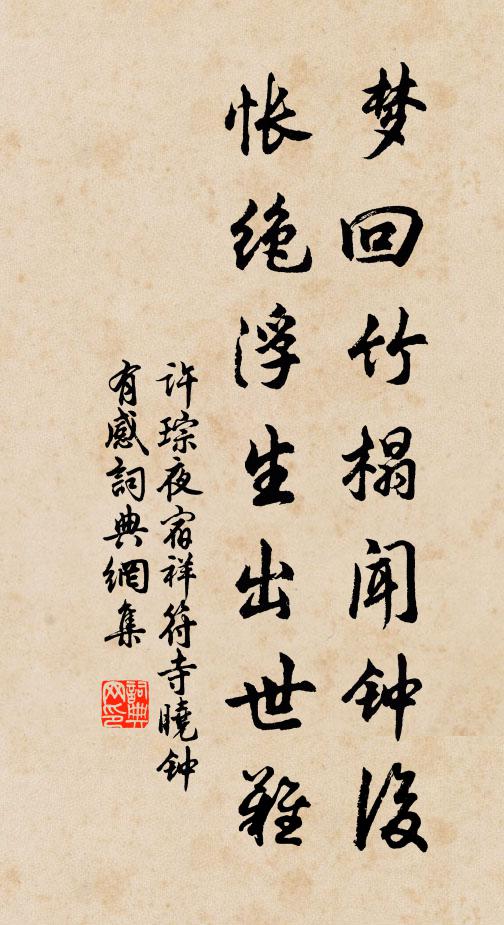 梦回竹榻闻钟后
怅绝浮生出世难
许琮夜宿祥符寺曉钟
有感詞典網集
詞典
网印